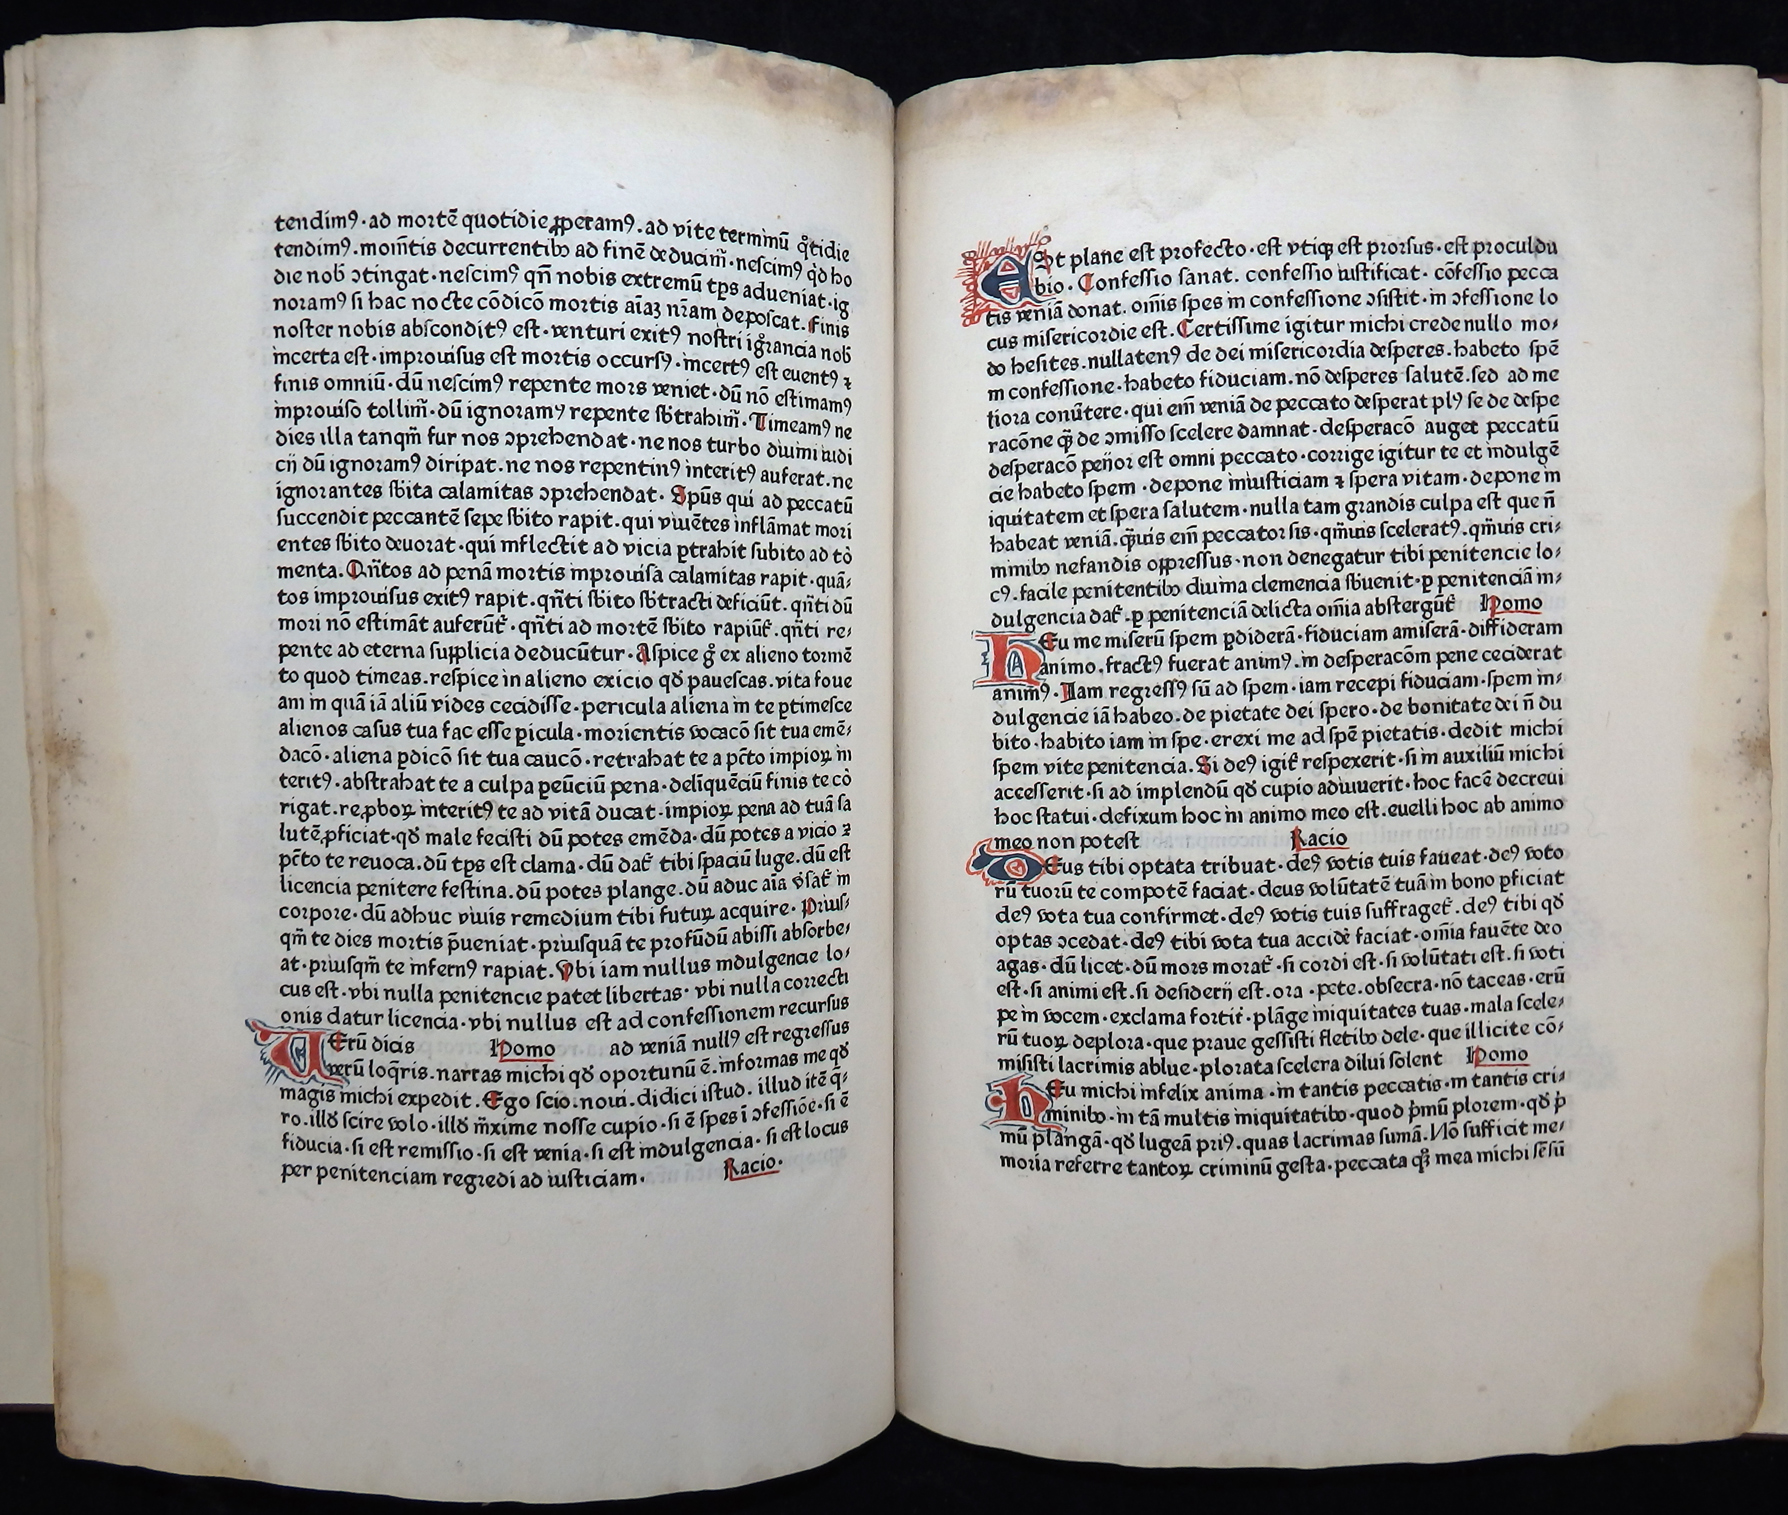 tendimꝰ·ad mortē quotidie ꝓperamꝰ.ad vite terminū qͦtidie
tendimꝰ.momē̄tis decurrentibꝫ ad finē deducim̄·nescimꝰ qͥd ho
die nob̄ ↄtingat·nescimꝰ qn̄ nobis extremū tp̄s adueniat·ig
noramꝰ si hac nocte cōdicō mortis aīaꝫ nr̄am deposcat.Finis
noster nobis absconditꝰ est·venturi exitꝰ nostri igͦrancia nob̄
incerta est·improuisus est mortis occursꝰ·incertꝰ est euentꝰ ꝛ
finis omniū·dū nescimꝰ repente mors veniet·dū nō estimamꝰ
inprouiso tollim̄·dū ignoramꝰ repente sb̄trahim̄·Timeamꝰ ne
dies illa tanqm̄ fur nos ↄprehendat·ne nos turbo diuini iudi
cij dū ignoramꝰ diripat.ne nos repentinꝰ interitꝰ auferat.ne
ignorantes sb̄ita calamitas ↄprehendat·Spūs qui ad peccatū
succendit peccantē sepe sb̄ito rapit·qui viuētes inflāmat mori
entes sb̄ito deuorat·qui inflectit ad vicia ꝑtrahit subito ad tō
menta.Qn̄tos ad penā mortis inprouisa calamitas rapit·quā⸗
tos improuisus exitꝰ rapit.qn̄ti sb̄ito sb̄tracti deficiūt.qn̄ti dū
mori nō estimāt auferūt᷑·qn̄ti ad mortē sb̄ito rapiūt᷑.qn̄ti re⸗
pente ad eterna supplicia deducūtur·Aspice gͦ ex alieno tormē
to quod timeas.respice in alieno exicio qd̄ pauescas.vita foue
am in quā iā aliū vides cecidisse·pericula aliena in te ꝑtimesce
alienos casus tua fac esse ꝑicula·morientis vocacō sit tua emē⸗
dacō·aliena ꝑdicō sit tua caucō·retrahat te a pc̄to impioꝝ in
teritꝰ.abstrahat te a culpa ꝑeūciū pena·deliquēciū finis te cō
rigat.reꝓboꝝ interitꝰ te ad vitā ducat·impioꝝ pena ad tuā sa
lutē ꝓficiat·qd̄ male fecisti dū potes emēda·dū potes a vicio ꝛ
pc̄to te reuoca.dū tp̄s est clama·dū dat᷑ tibi spaciū luge.dū est
licencia penitere festina.dū potes plange.dū aduc aīa v̄sat᷑ in
corpore·dū adhuc viuis remedium tibi futuꝝ acquire·Prius⸗
qm̄ te dies mortis p̄ueniat·priusquā te profūdū abissi absorbe⸗
at·priusqm̄ te infernꝰ rapiat.Vbi iam nullus indulgencie lo⸗
cus est·vbi nulla penitencie patet libertas·vbi nulla correcti
onis datur licencia·vbi nullus est ad confessionem recursus
VErū dicis Homo ad veniā nullꝰ est regressus
verū loqͤris.narras michi qd̄ oportunū ē.informas me qd̄
magis michi expedit.Ego scio.noui.didici istud.illud itē q̄⸗
ro.illd̄ scire volo·illd̄ m̄xime nosse cupio·si ē spes ī ↄfessiōe·si ē
fiducia·si est remissio·si est venia·si est indulgencia·si est locus
per penitenciam regredi ad iusticiam· Racio·
ESt plane est profecto·est vtiqꝫ est prorsus·est proculdu
bio·Confessio sanat.confessio iustificat·cōfessio pecca
tis veniā donat.om̄is spes in confessione ↄsistit·in ↄfessione lo
cus misericordie est.Certissime igitur michi crede nullo mo⸗
do hesites.nullatenꝰ de dei misericordia desperes.habeto spē
in confessione·habeto fiduciam.nō desperes salutē.sed ad me
liora conūtere·qui em̄ veniā de peccato desperat plꝰ se de despe
racōne qͣꝫ de ↄmisso scelere damnat·desperacō auget peccatū
desperacō peīior est omni peccato·corrige igitur te et indulgē
cie habeto spem·depone iniusticiam ꝛ spera vitam·depone in
iquitatem et spera salutem·nulla tam grandis culpa est que n̄
habeat veniā.qͣꝫuis em̄ peccator sis·qm̄uis sceleratꝰ.qm̄uis cri⸗
minibꝫ nefandis oppressus·non denegatur tibi penitencie lo⸗
cꝰ.facile penitentibꝫ diuina clemencia sb̄uenit·ꝑ penitenciā in⸗
dulgencia dat᷑.ꝑ penitenciā delicta om̄ia abstergūt᷑ Homo
HEu me miserū spem ꝑdiderā·fiduciam amiserā·diffideram
animo.fractꝰ fuerat animꝰ.in desperacōm pene ceciderat
animꝰ·Iam regressꝰ sū ad spem·iam recepi fiduciam·spem in⸗
dulgencie iā habeo·de pietate dei spero·de bonitate dei n̄ du
bito·habito iam in spe·erexi me ad spē pietatis·dedit michi
spem vite penitencia.Si deꝰ igit᷑ respexerit·si in auxiliū michi
accesserit·si ad implendū qd̄ cupio adiuuerit·hoc facē decreui
hoc statui·defixum hoc in animo meo est.euelli hoc ab animo
meo non potest Racio
DEus tibi optata tribuat·deꝰ votis tuis faueat·deꝰ voto
rū tuorū te compotē faciat·deus volūtatē tuā in bono ꝑficiat
deꝰ vota tua confirmet·deꝰ votis tuis suffraget᷑.deꝰ tibi qd̄
optas ↄcedat·deꝰ tibi vota tua accidē faciat·om̄ia fauēte deo
agas·dū licet·dū mors morat᷑·si cordi est·si volūtati est.si voti
est·si animi est.si desiderij est.ora·pete.obsecra·nō taceas·erū
pe in vocem·exclama fortit᷑·plāge iniquitates tuas·mala scele⸗
rū tuoꝝ deplora·que praue gessisti fletibꝫ dele·que illicite cō⸗
misisti lacrimis ablue·plorata scelera dilui solent Homo
HEu michi infelix anima·in tantis peccatis·in tantis cri⸗
minibꝫ·in tā multis iniquitatibꝫ·quod pͥmū plorem·qd̄ pͥ
mū plangā·qd̄ lugeā priꝰ.quas lacrimas sumā.Nō sufficit me⸗
moria referre tantoꝝ criminū gesta·peccata qͥꝫ mea michi sēsū